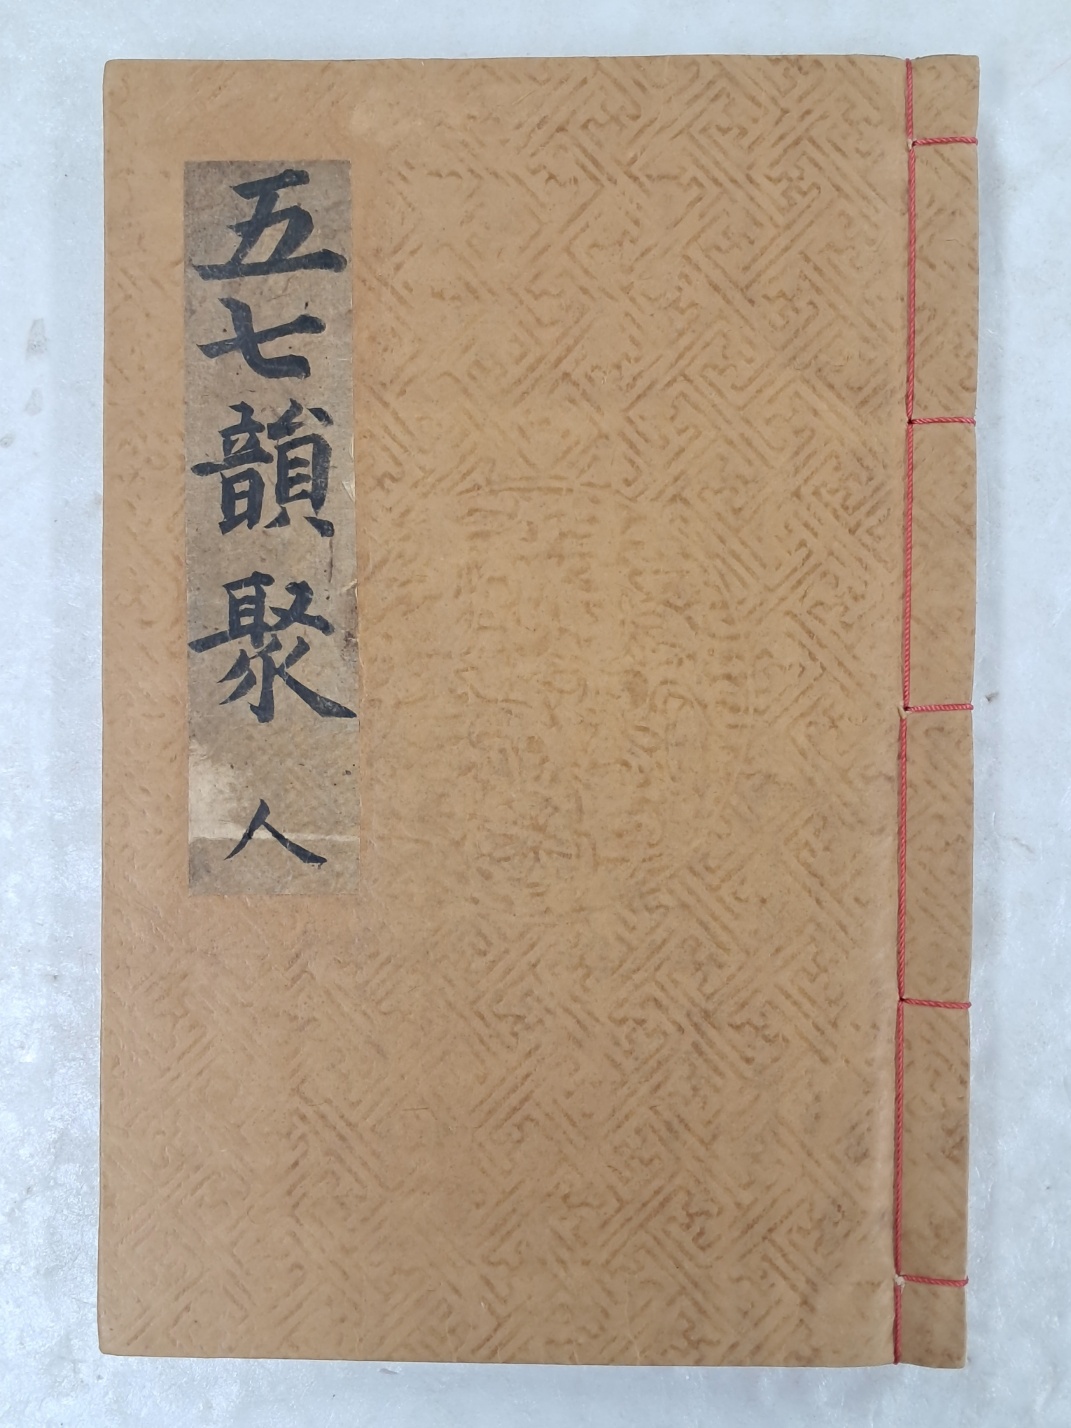 五七韻聚 人